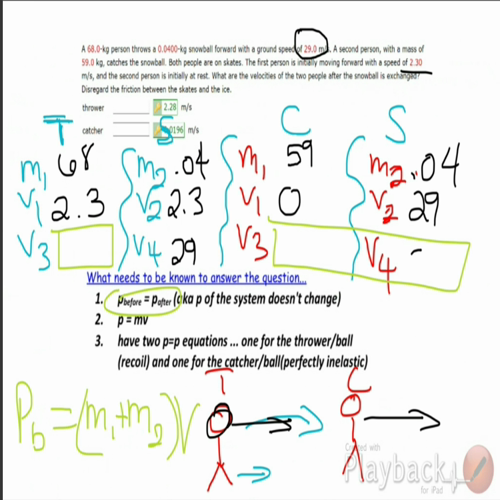 A 68.0-kg person throws a 0.0400-kg snowball forward with a ground speed of 29.0 m/s. A second person, with a mass of
59.0 kg, catches the snowball. Both people are on skates. The first person is initially moving forward with a speed of 2.30
m/s, and the second person is initially at rest. What are the velocities of the two people after the snowball is exchanged?
Disregard the friction between the skates and the ice.
thrower 2.28 m/s
catcher .0196 m/s
T S C S
m1 68 m2 .04 m1 59 m2 .04
V1 2.3 V2 2.3 V1 0 V2 29
V3 V4 29 V3 V4 -
What needs to be known to answer the question...
1. pbefore = pafter (aka p of the system doesn't change)
2. p = mv
3. have two p=p equations ... one for the thrower/ball
(recoil) and one for the catcher/ball(perfectly inelastic)
T C
Pb = (m1+m2)V
Created with
Playback
for iPad